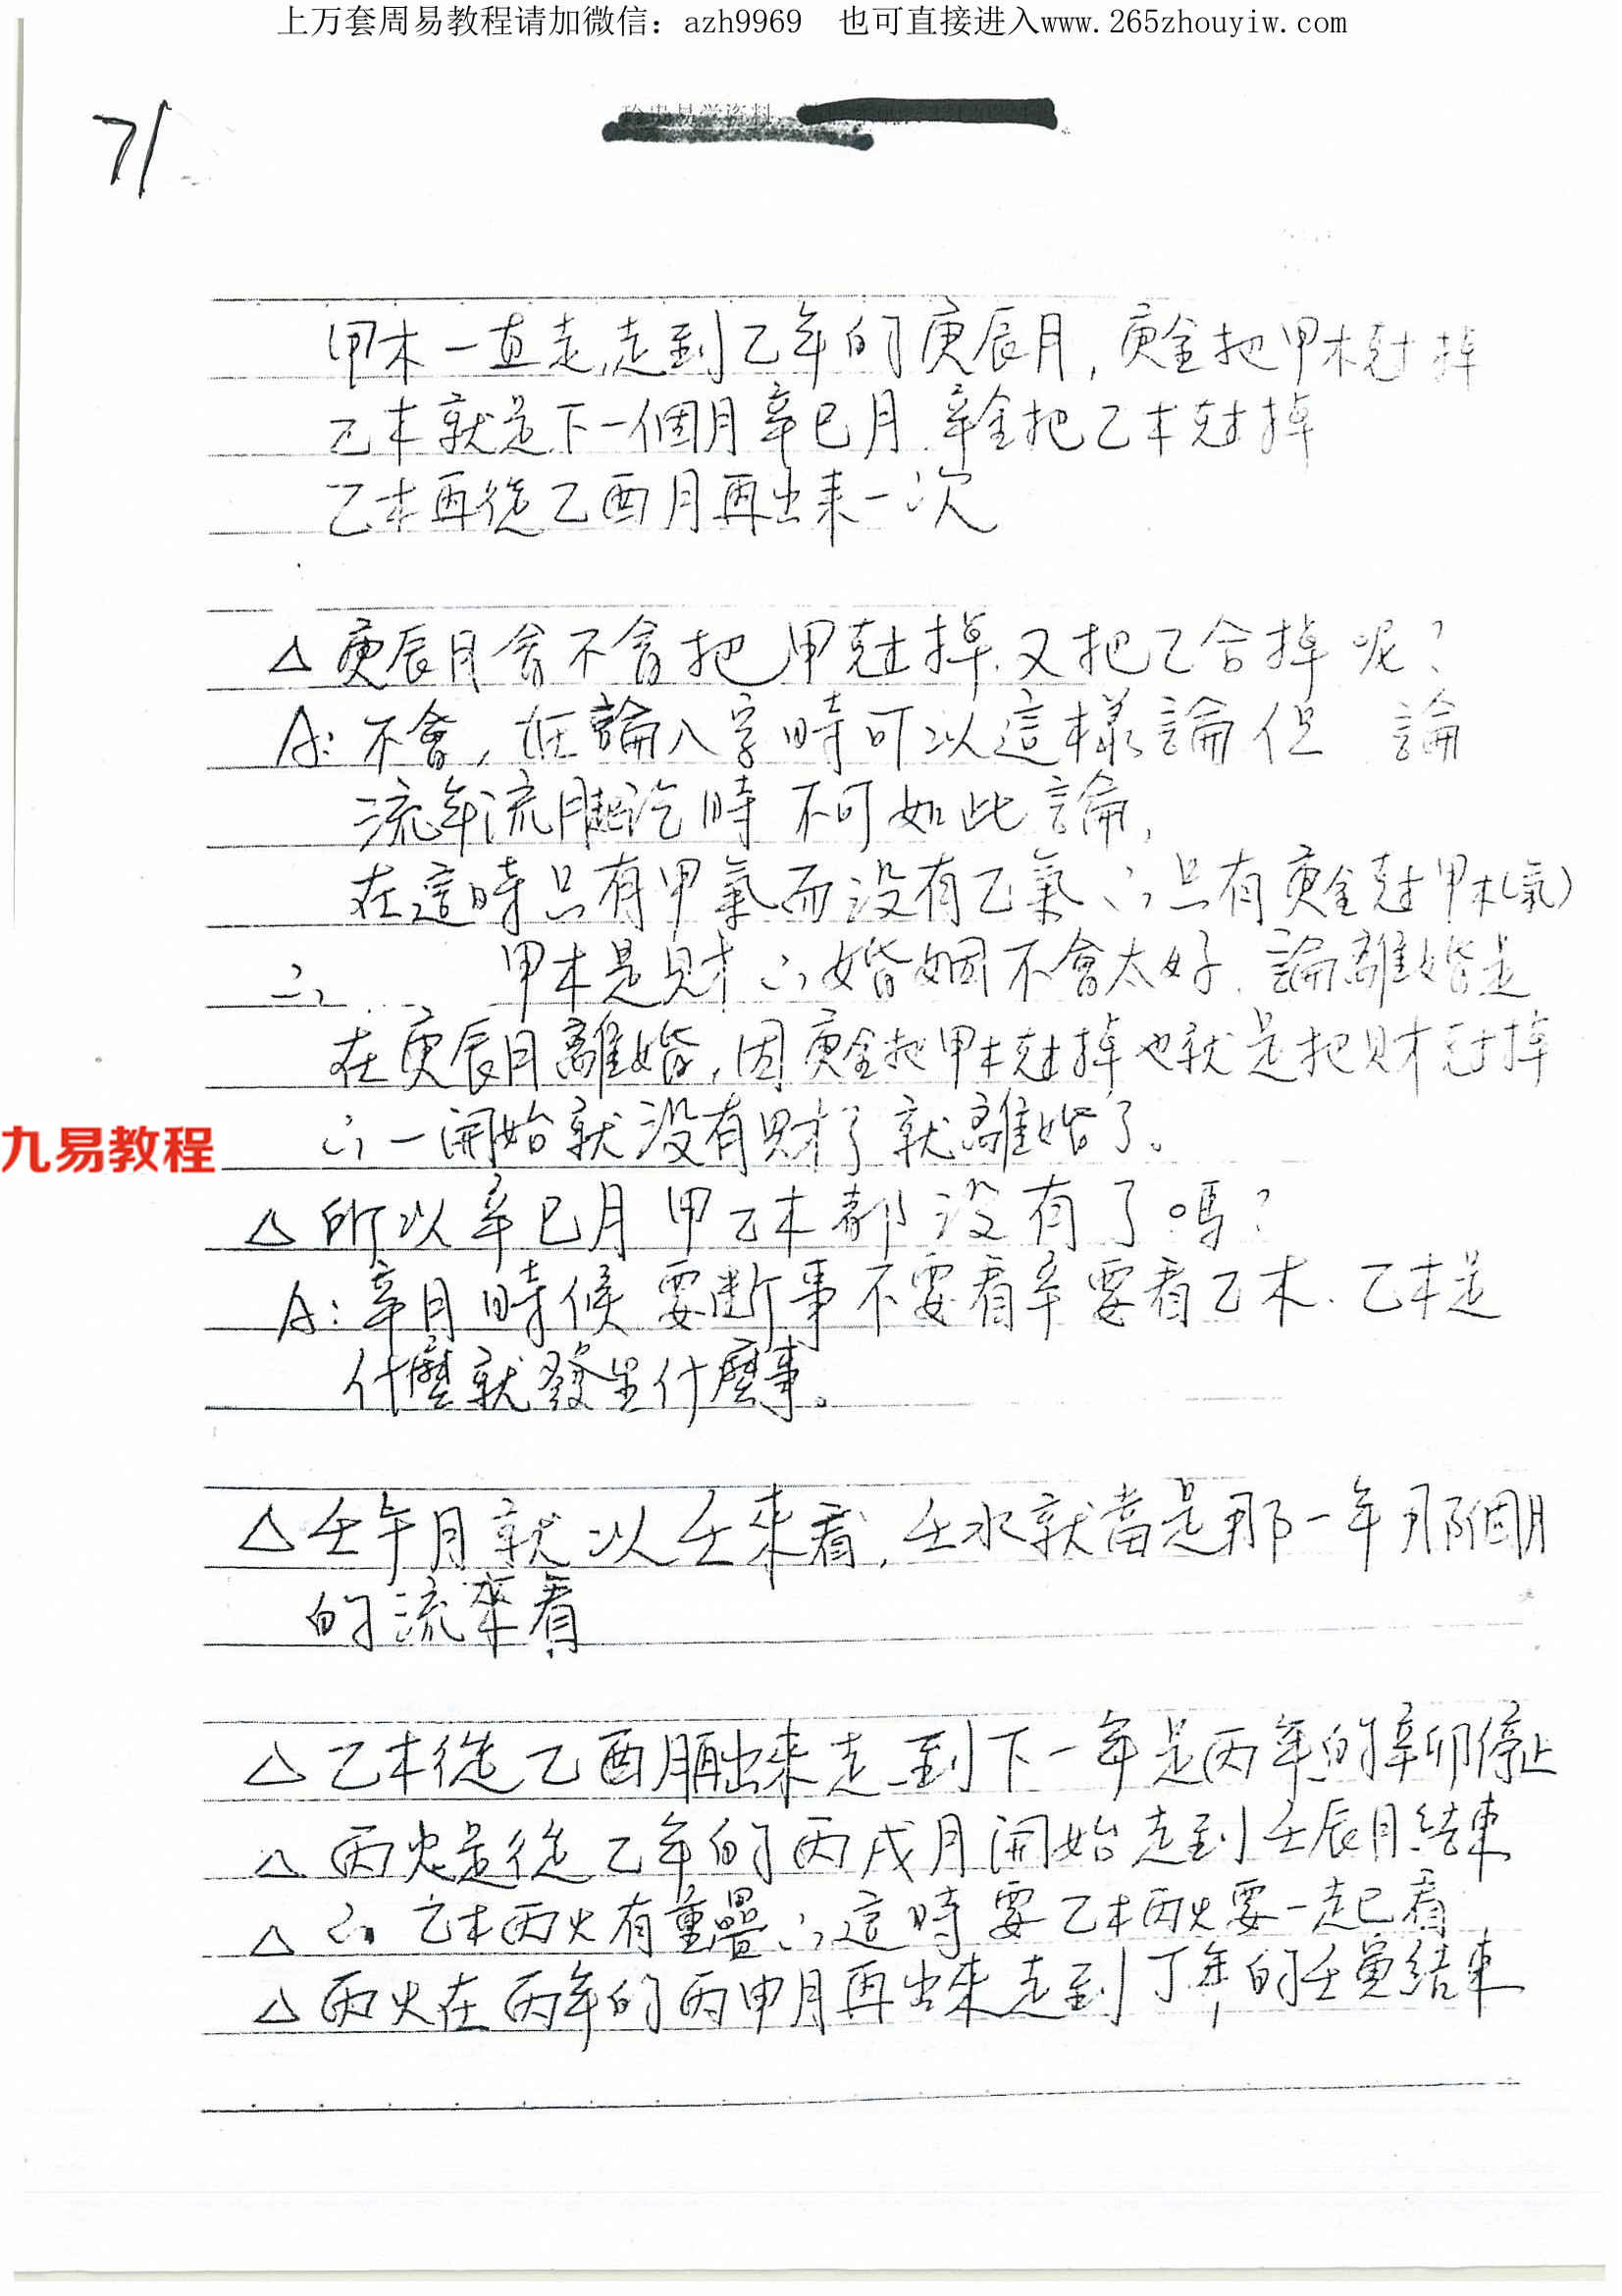 上万套周易教程请加微信：azh9969 也可直接进入www.265zhouyiw.com
71
甲木一直走,走到乙年的庚辰月,庚金把甲木尅掉
乙木就是下一個月辛巳月.辛金把乙木尅掉
乙木再從乙酉月再出來一次
△庚辰月會不會把甲尅掉.又把乙合掉呢?
A:不會,在論八字時可以這樣論但 論
流年流月起訖時不可如此論,
在這時只有甲氣而没有乙氣∴只有庚金尅甲木(氣)
∴ 甲木是財∴婚姻不會太好.論離婚是
在庚辰月離婚,因庚金把甲木尅掉也就是把財尅掉
∴一開始就没有財了就離婚了。
九易教程
△所以辛巳月甲乙木都没有了嗎?
A:辛月時候要断事不要看辛要看乙木.乙木是
什麼就發生什麼事。
△壬午月就以壬來看,壬水就當是那一年那個月
的流來看
△乙木從乙酉月再出來走到下一年是丙年的辛卯停止
△丙火是從乙年的丙戌月開始走到壬辰月結束
△∴乙木丙火有重疊∴這時要乙木丙火要一起看
△丙火在丙年的丙申月再出來走到丁年的壬寅結束